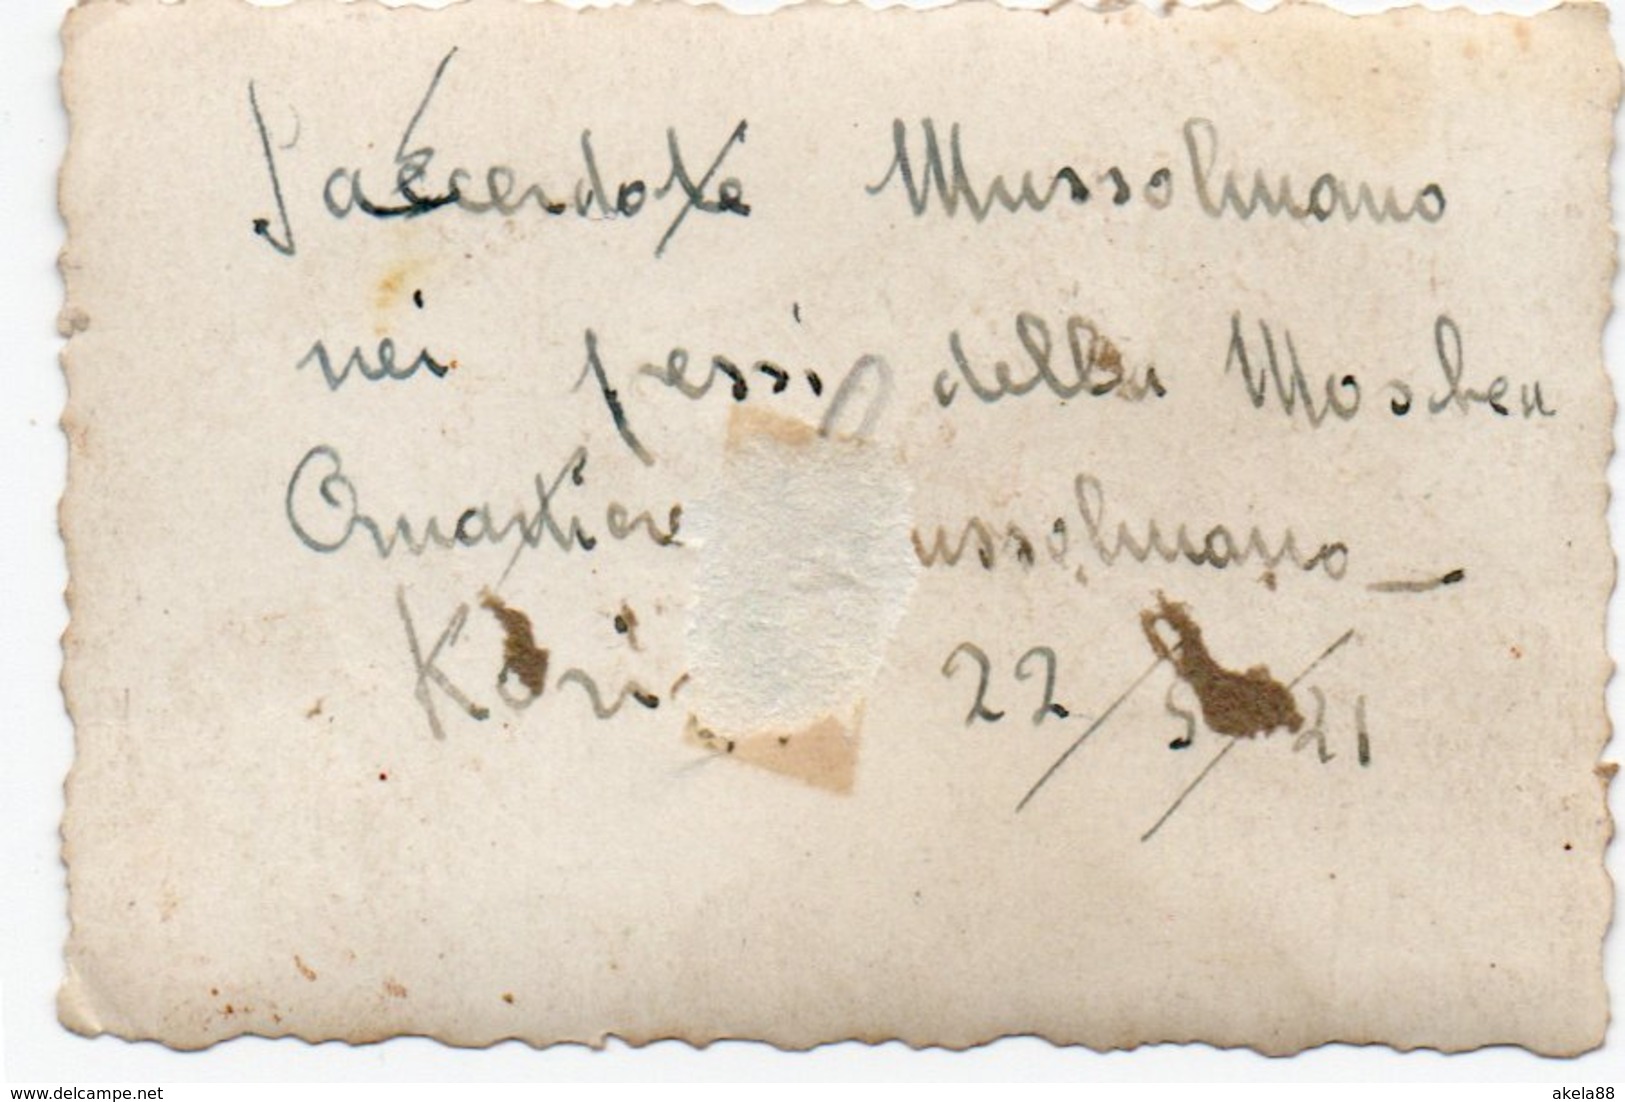 Saccerdote Mussolmano
nei pressi della Moschea
Quartiere ussolmano _
22 / 21
www.delcampe.net
akela88